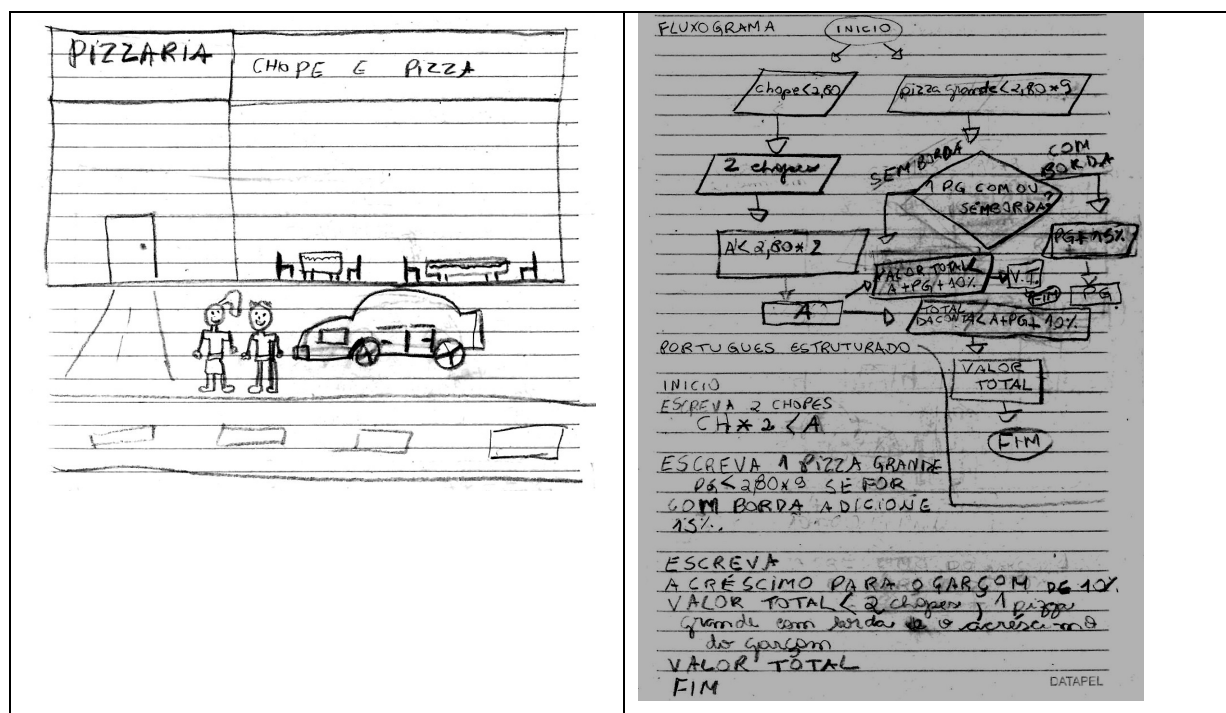 PIZZARIA
CHOPE E PIZZA
FLUXOGRAMA
INICIO
chope<2,80
pizza grande<2,80*9
2 chopes
SEM BORDA
COM BORDA
1 PG COM OU SEMBORDA?
A<2,80*2
PG+15%
VALOR TOTAL< A+PG+10%
V.T.
FIM
PG
A
TOTAL DACONTA<A+PG+10%
VALOR TOTAL
FIM
PORTUGUES ESTRUTURADO
INICIO
ESCREVA 2 CHOPES
CH*2<A
ESCREVA 1 PIZZA GRANDE
PG<2,80*9 SE FOR
COM BORDA ADICIONE
15%.
ESCREVA
ACRÉSCIMO PARA O GARÇOM DE 10%
VALOR TOTAL< 2 chopes, 1 pizza
grande com borda o acréscimo
do garçom
VALOR TOTAL
FIM
DATAPEL